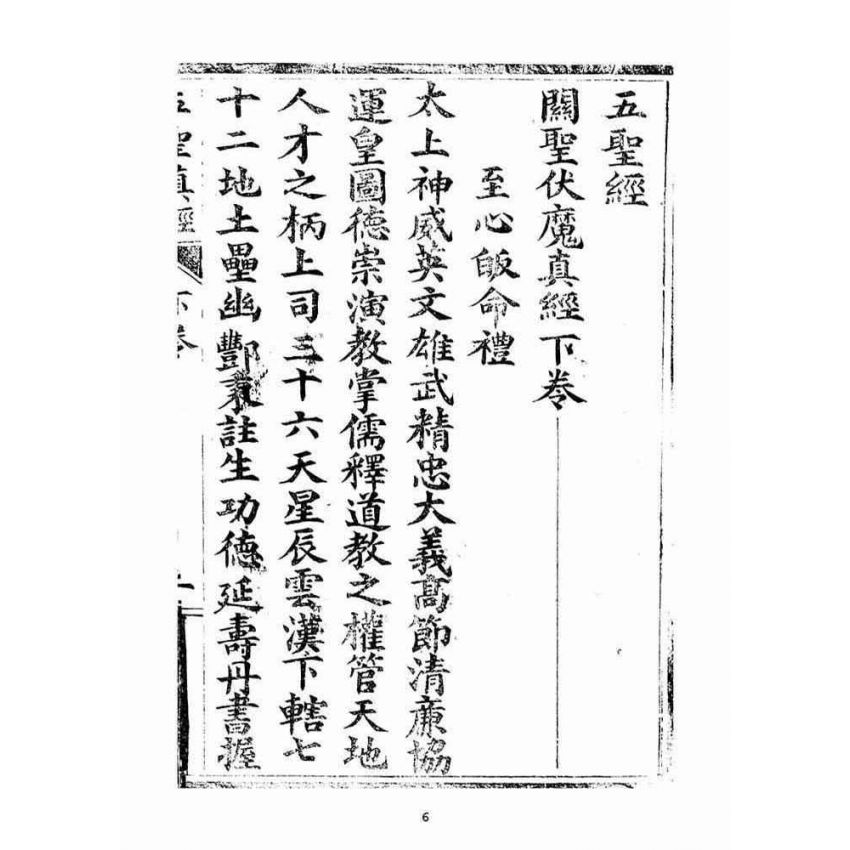 五聖經
關聖伏魔真經下卷
至心皈命禮
太上神威英文雄武精忠大義髙節清廉協
運皇圖德崇演教掌儒釋道教之權管天地
人才之柄上司三十六天星辰雲漢下轄七
十二地土壘幽酆秉註生功德延壽丹書握
五聖真經 下卷
6